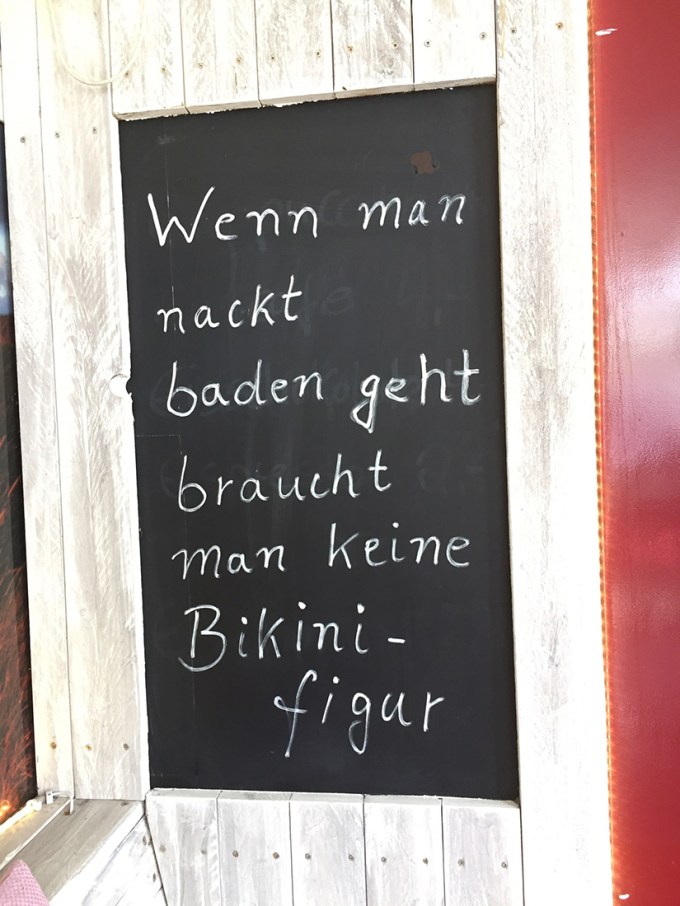 Wenn man
nackt
baden geht
braucht
man keine
Bikini-
figur